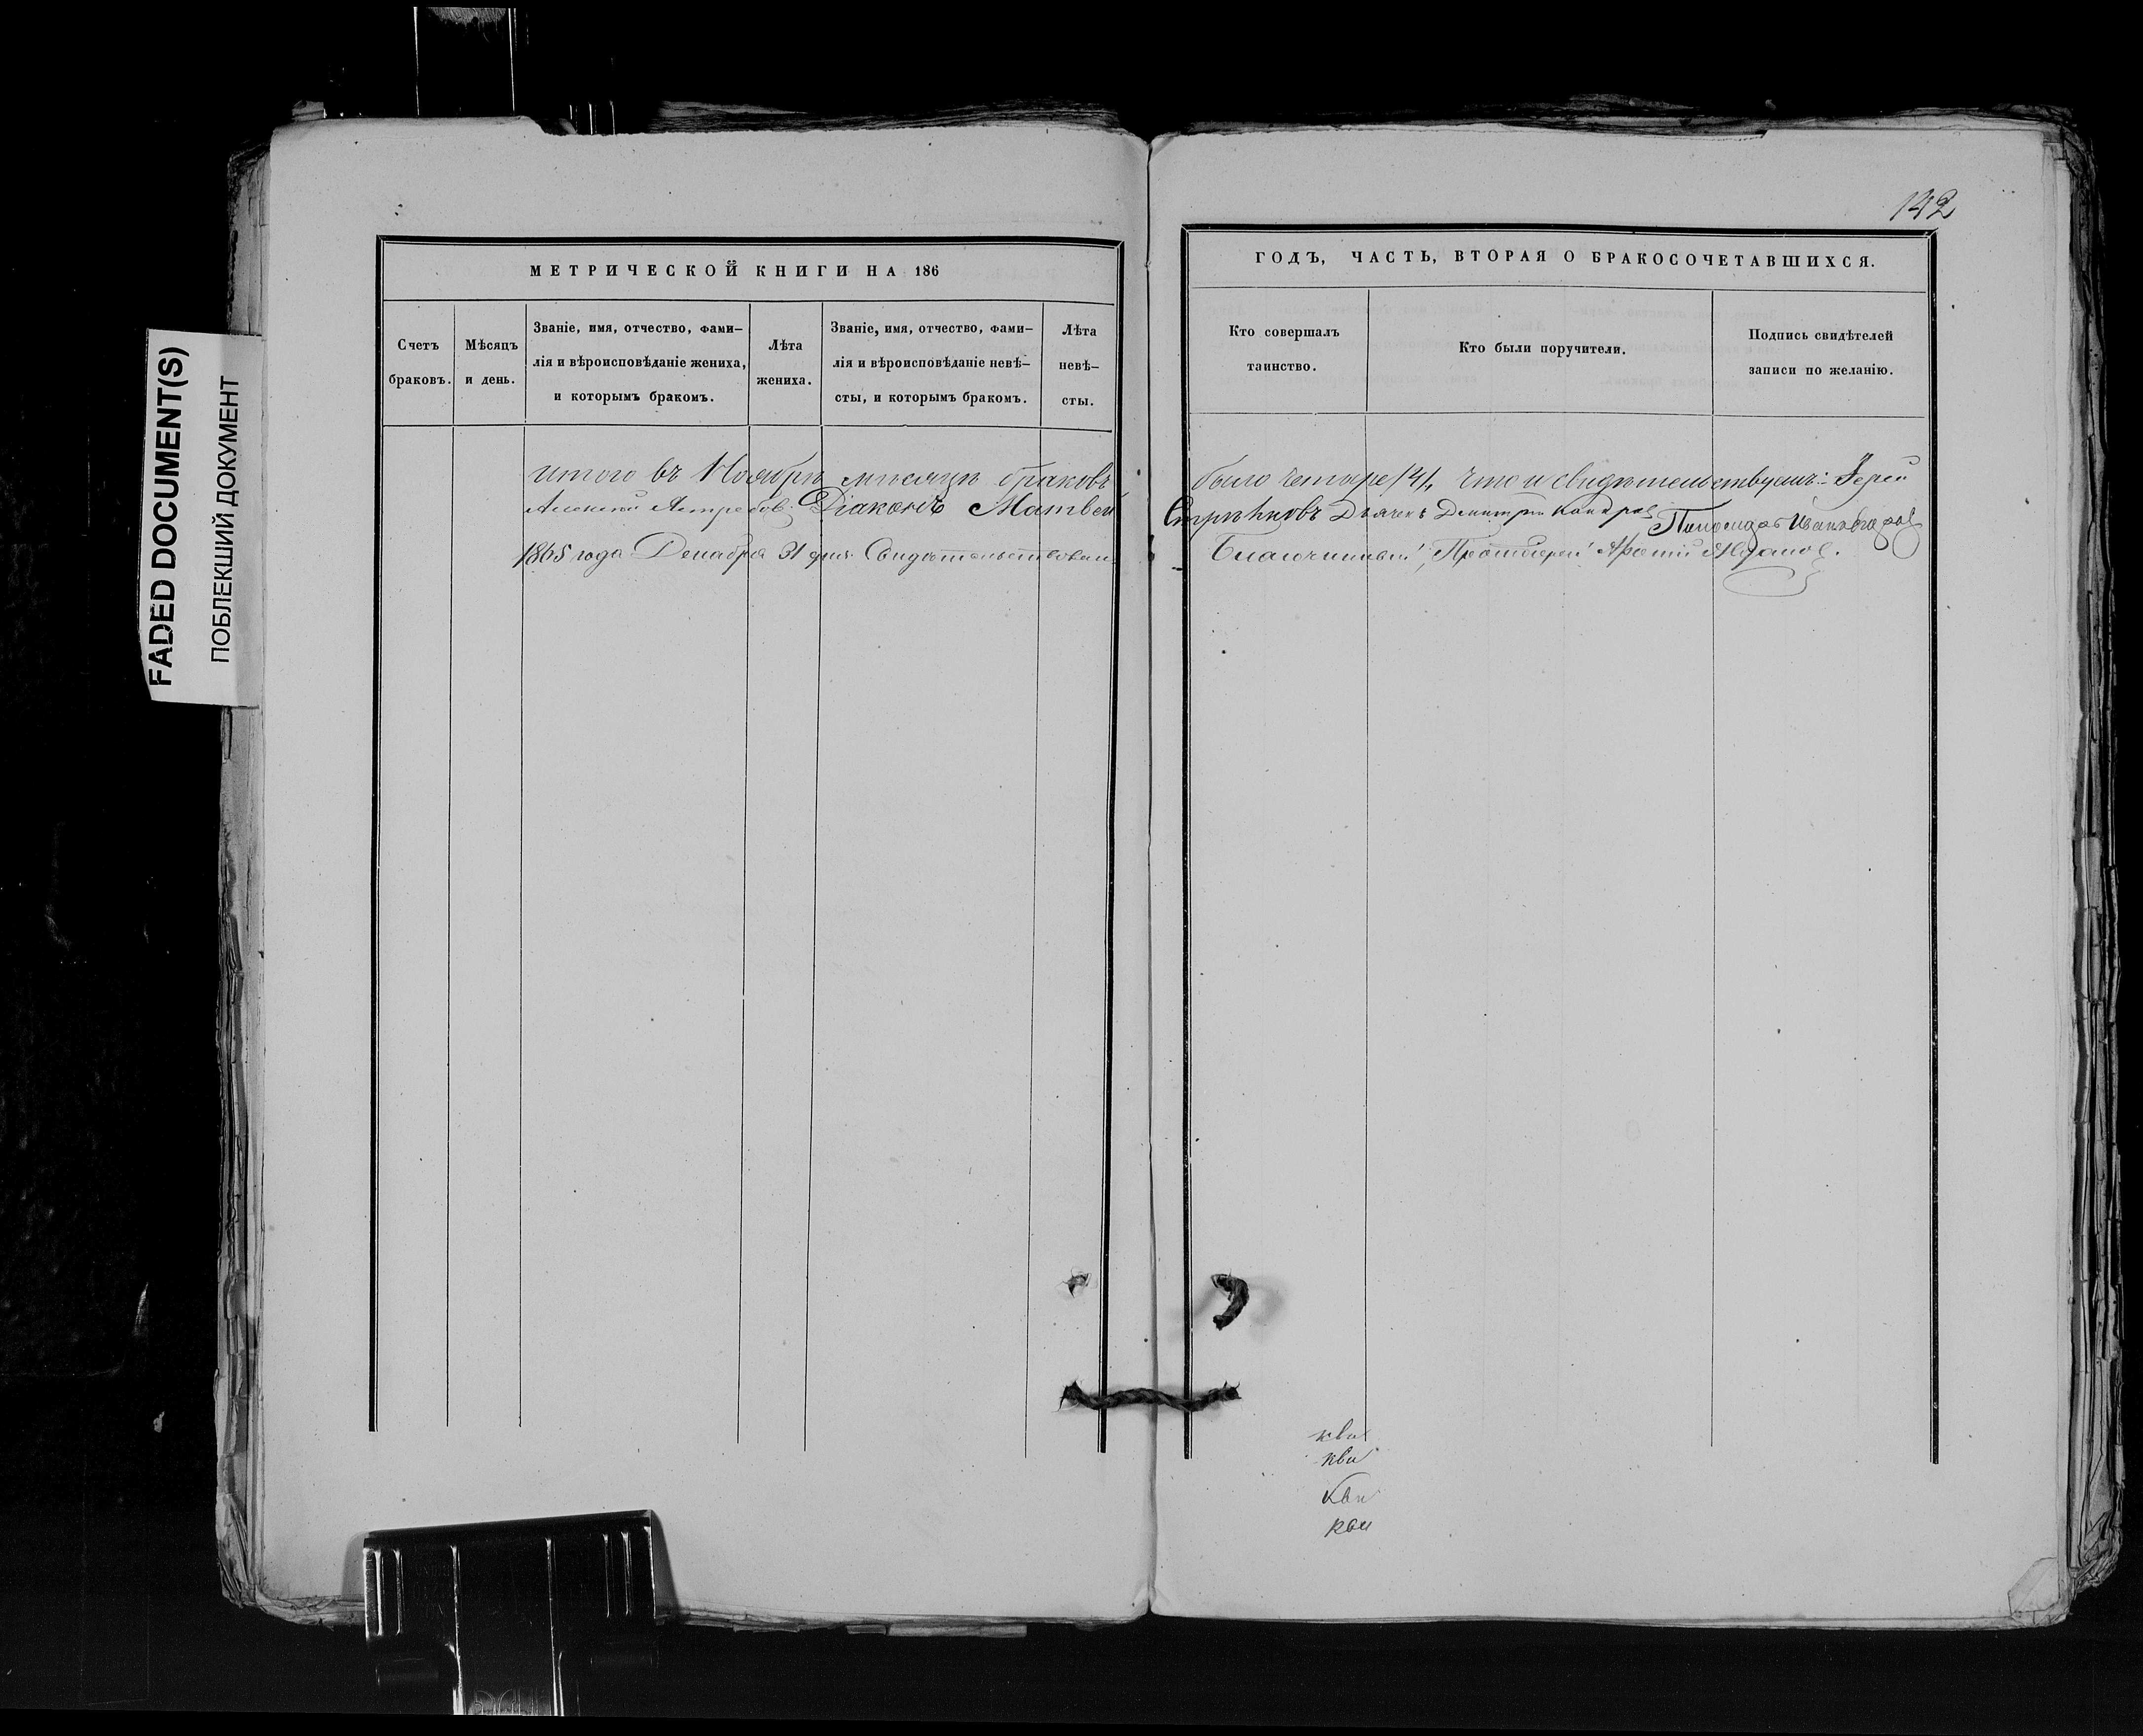 142
FADED DOCUMENT(S)
ПОБЛЕКШИЙ ДОКУМЕНТ
МЕТРИЧЕСКОЙ КНИГИ НА 186
Счетъ
браковъ.
Мѣсяцъ
и день.
Званіе, имя, отчество, фами-
лія и вѣроисповѣданіе жениха,
и которымъ бракомъ.
Лѣта
жениха.
Званіе, имя, отчество, фами-
лія и вѣроисповѣданіе невѣ-
сты, и которымъ бракомъ.
Лѣта
невѣ-
сты.
ГОДЪ, ЧАСТЬ, ВТОРАЯ О БРАКОСОЧЕТАВШИХСЯ.
Кто совершалъ
таинство.
Кто были поручители.
Подпись свидѣтелей
записи по желанію.
итого въ Ноябрѣ мѣсяцѣ браковъ было четыре /4/, что и свидѣтельствуемъ: Іерей
Алексѣй Ястребов. Діаконъ Матвей Стрѣлковъ Дьячекъ Димитрій Пономарь
1865 года Декабря 31 дня. Свидѣтельствовалъ Благочинный, Протоіерей
кви
кви
кви
кви